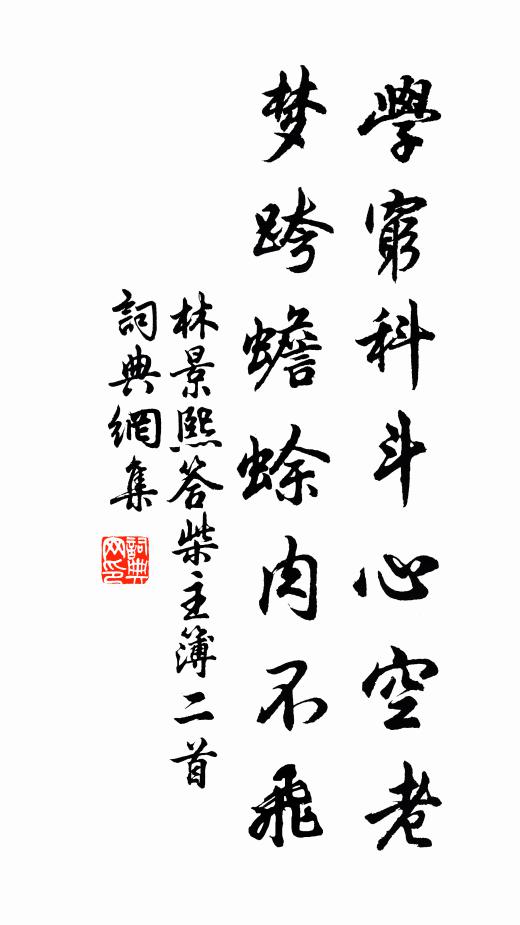 學窮科斗心空老
梦跨蟾蜍肉不飛
林景熙答柴主簿二首
詞典網集
詞典
网印